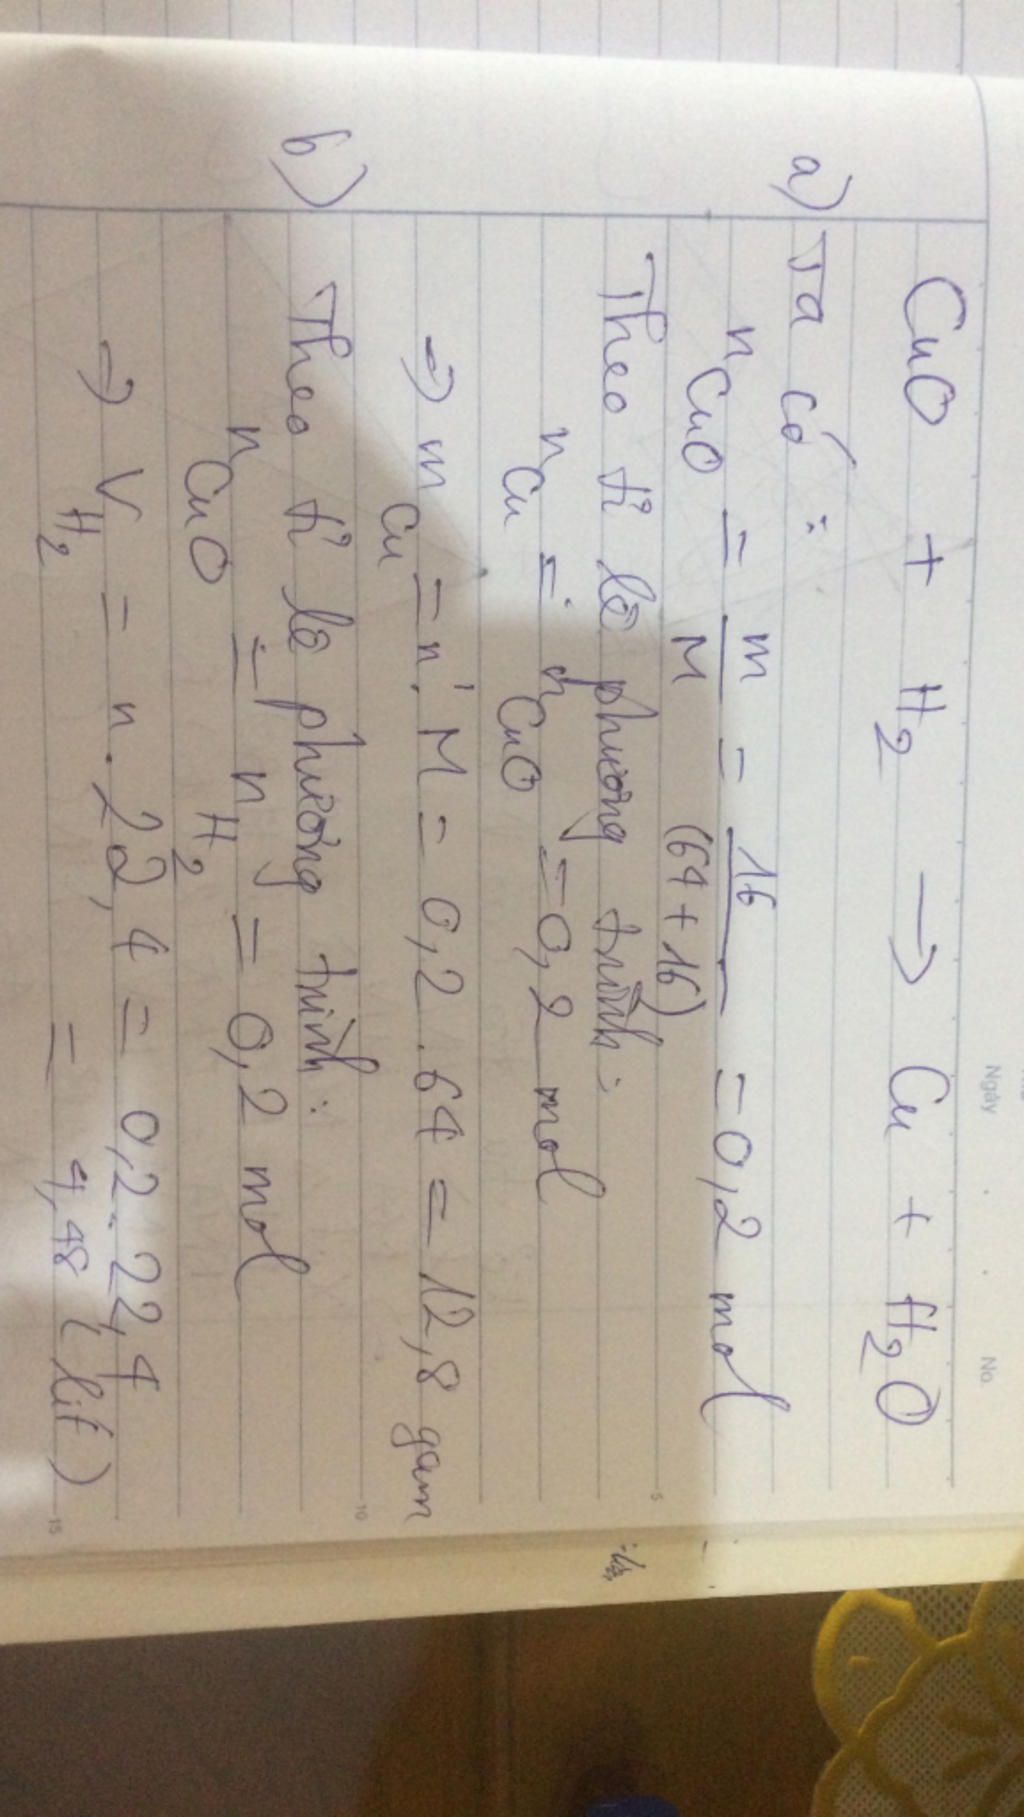 Ngày
No.
CuO + H2 → Cu + H2O
a) Ta có:
nCuO = m/M = 16/(64+16) = 0,2 mol
Theo tỉ lệ phương trình:
nCu = nCuO = 0,2 mol
⇒ mCu = n.M = 0,2.64 = 12,8 gam
b) Theo tỉ lệ phương trình:
nCuO = nH2 = 0,2 mol
⇒ VH2 = n.22,4 = 0,2.22,4
= 4,48 (lít)
5
10
15